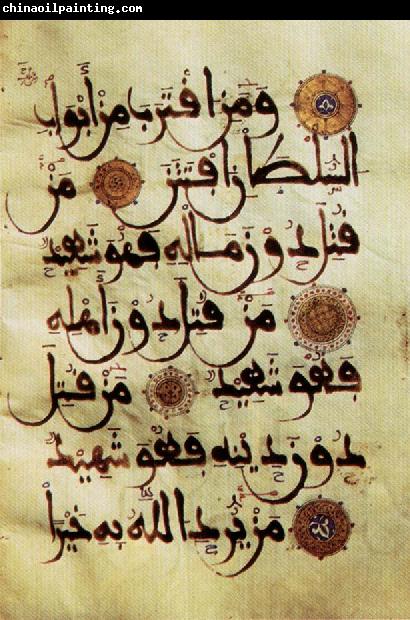 chinaoilpainting.com
ومن اقترب من أبواب
السلطان افتتن من
قتل دون ماله فهو شهيد
من قتل دون أهله
فهو شهيد من قتل
دون دينه فهو شهيد
من يرد الله به خيرا